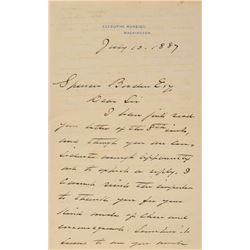 EXECUTIVE MANSION,
WASHINGTON.
July 12. 1887
Spencer Borden Esq
Dear Sir
I have just read
your letter of the 8th inst.
and though you are con-
siderate enough apparently
not to expect a reply, I
cannot resist the impulse
to thank you for your
kind words of cheer and
encouragement. Somehow it
seems to me you